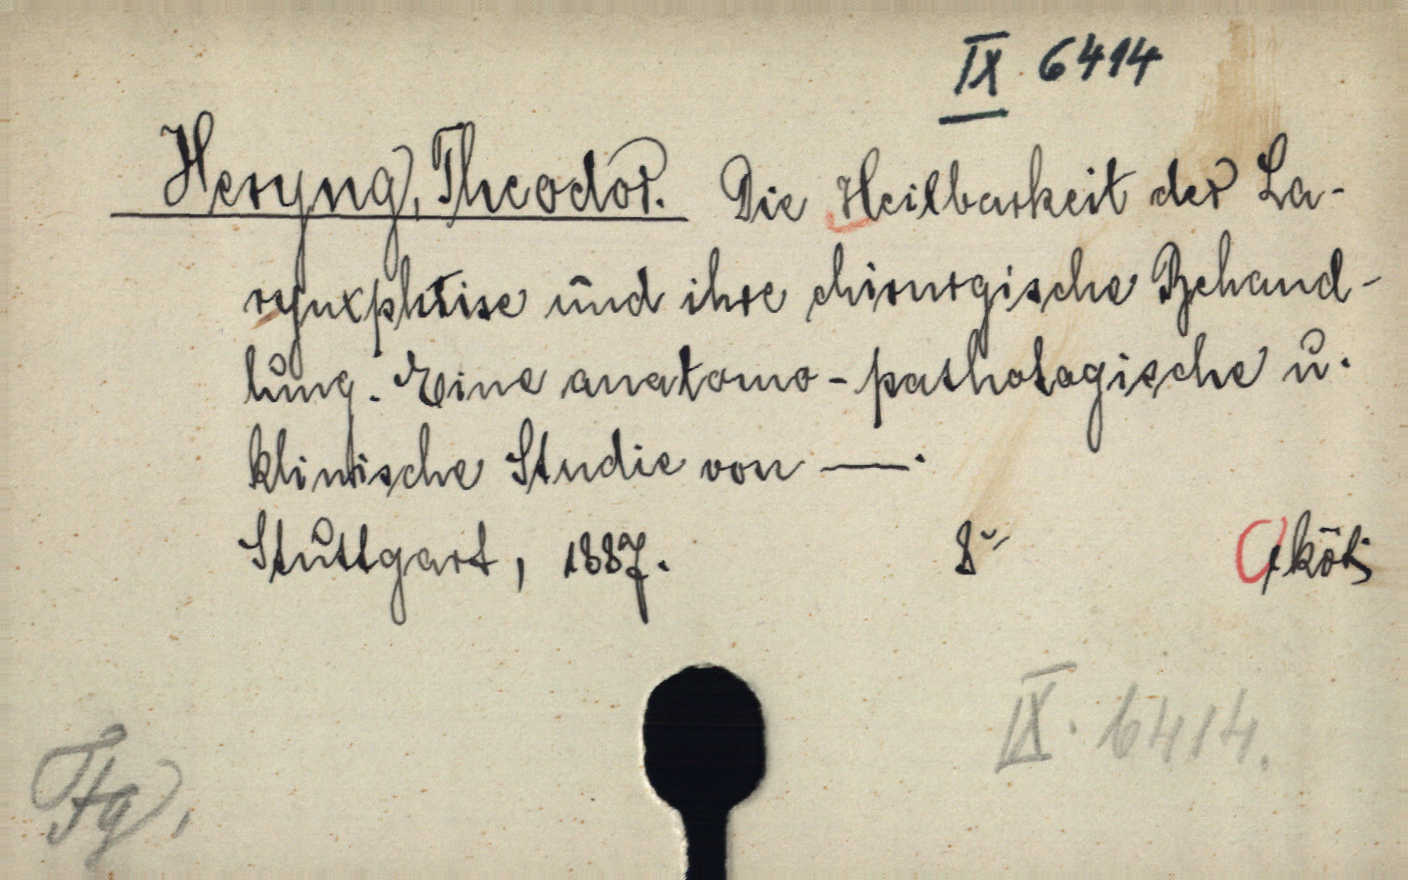 IX 6414
Heryng, Theodor. Die Heilbarkeit der La-
rynxphtise und ihre chirurgische Behand-
lung. Eine anatomo-pathologische u.
klinische Studie von —.
Stuttgart, 1887. 8° köt.
IX. 6414.